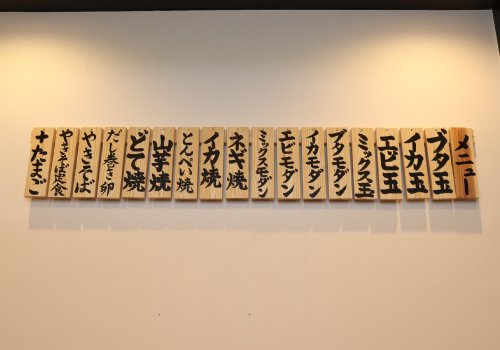 メニュー
ブタ玉
イカ玉
エビ玉
ミックス玉
ブタモダン
イカモダン
エビモダン
ミックスモダン
ネギ焼
イカ焼
とんぺい焼
山芋焼
どて焼
だし巻き卵
やきそば
やきそば定食
+たまご